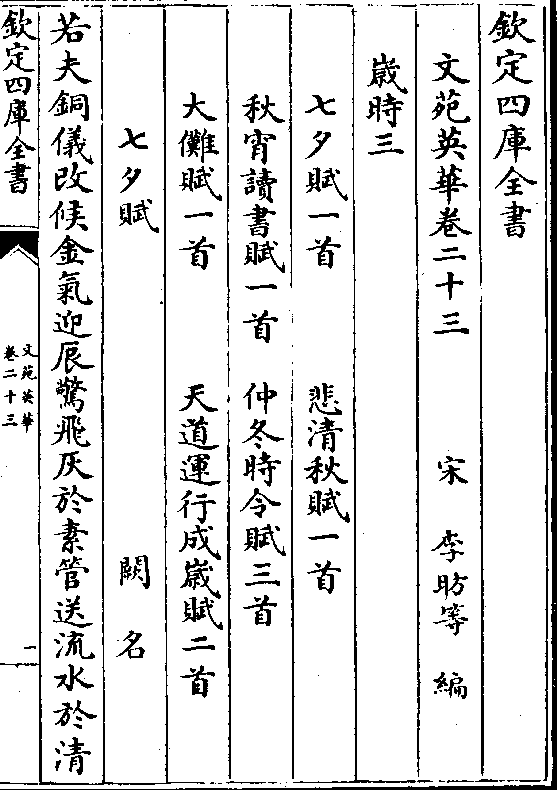 欽定四庫全書
文苑英華卷二十三 宋 李昉等 編
歲時三
七夕賦一首 悲清秋賦一首
秋宵讀書賦一首 仲冬時令賦三首
大儺賦一首 天道運行成歲賦二首
七夕賦 闕名
若夫銅儀改候金氣迎辰驚飛灰於素管送流水於清
欽定四庫全書
文苑英華
卷二十三
一